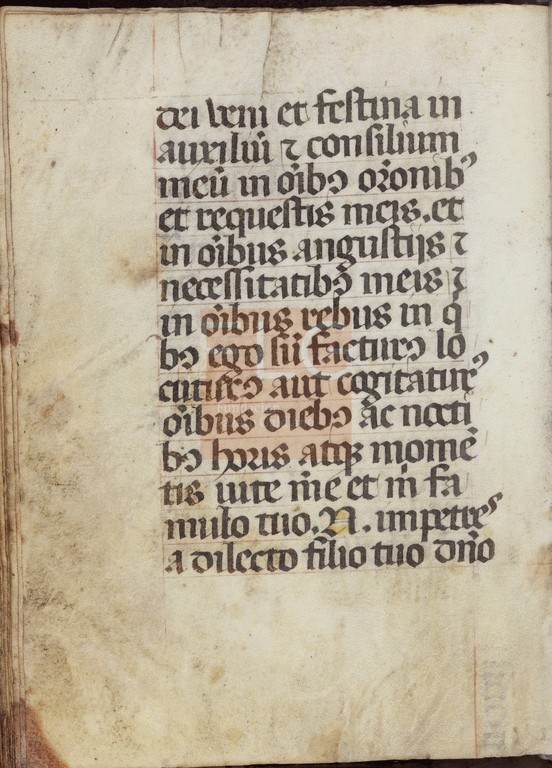 dei veni et festina in
auxiliū ⁊ consilium
meū in oībꝯ orōnibꝯ
et requestis meis. et
in oībus angustijs ⁊
necessitatibꝯ meis ⁊
in oībus rebus in q̄
bꝯ ego sū facturꝯ lo
cuturꝯ aut cogitaturꝯ
oībus diebꝯ ac nocti
bꝯ horis atqꝫ momē
tis uite mē et m̄ fa
mulo tuo. N. impetres
a dilecto filio tuo dn̄o